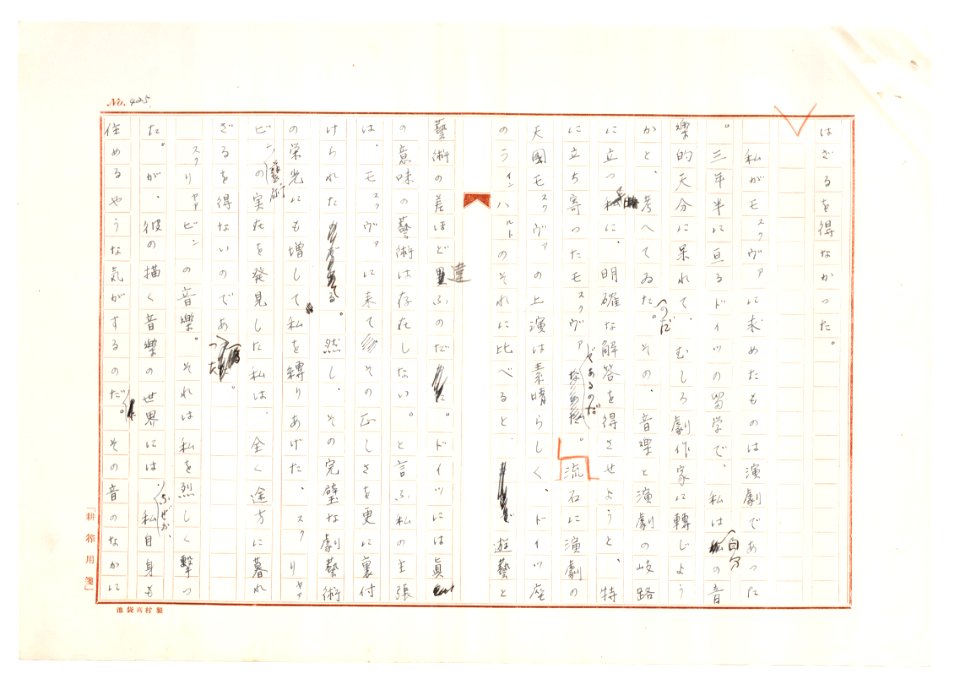 No. 425
はざるを得なかった。
私がモスクヴァに求めたものは演劇であった
。三年半に亘るドイツの留学で、私は自分の音
樂的天分に呆れて、むしろ劇作家に轉じよう
かと、考へてゐたのだ。その、音楽と演劇の岐路
に立つ私に、明確な解答を得させようと、特
に立ち寄ったモスクヴァであるのだ。流石に演劇の
天國モスクヴァの上演は素晴らしく、ドイツ座
のラインハルトのそれに比べると、遊藝と
藝術の差ほど違ふのだ。ドイツには眞
の意味の藝術は存在しない。と言ふ私の主張
は、モスクヴァに来てその正しさを更に裏付
けられた。然し、その完璧な劇藝術
の栄光にも増して私を縛りあげた、スクリヤ
ビン藝術の実在を発見した私は、全く途方に暮れ
ざるを得ないのであった。
スクリヤビンの音樂。それは私を烈しく撃っ
た。が、彼の描く音樂の世界には、なぜか、私自身も
住めるやうな気がするのだ。その音のなかに
「耕筰用箋」